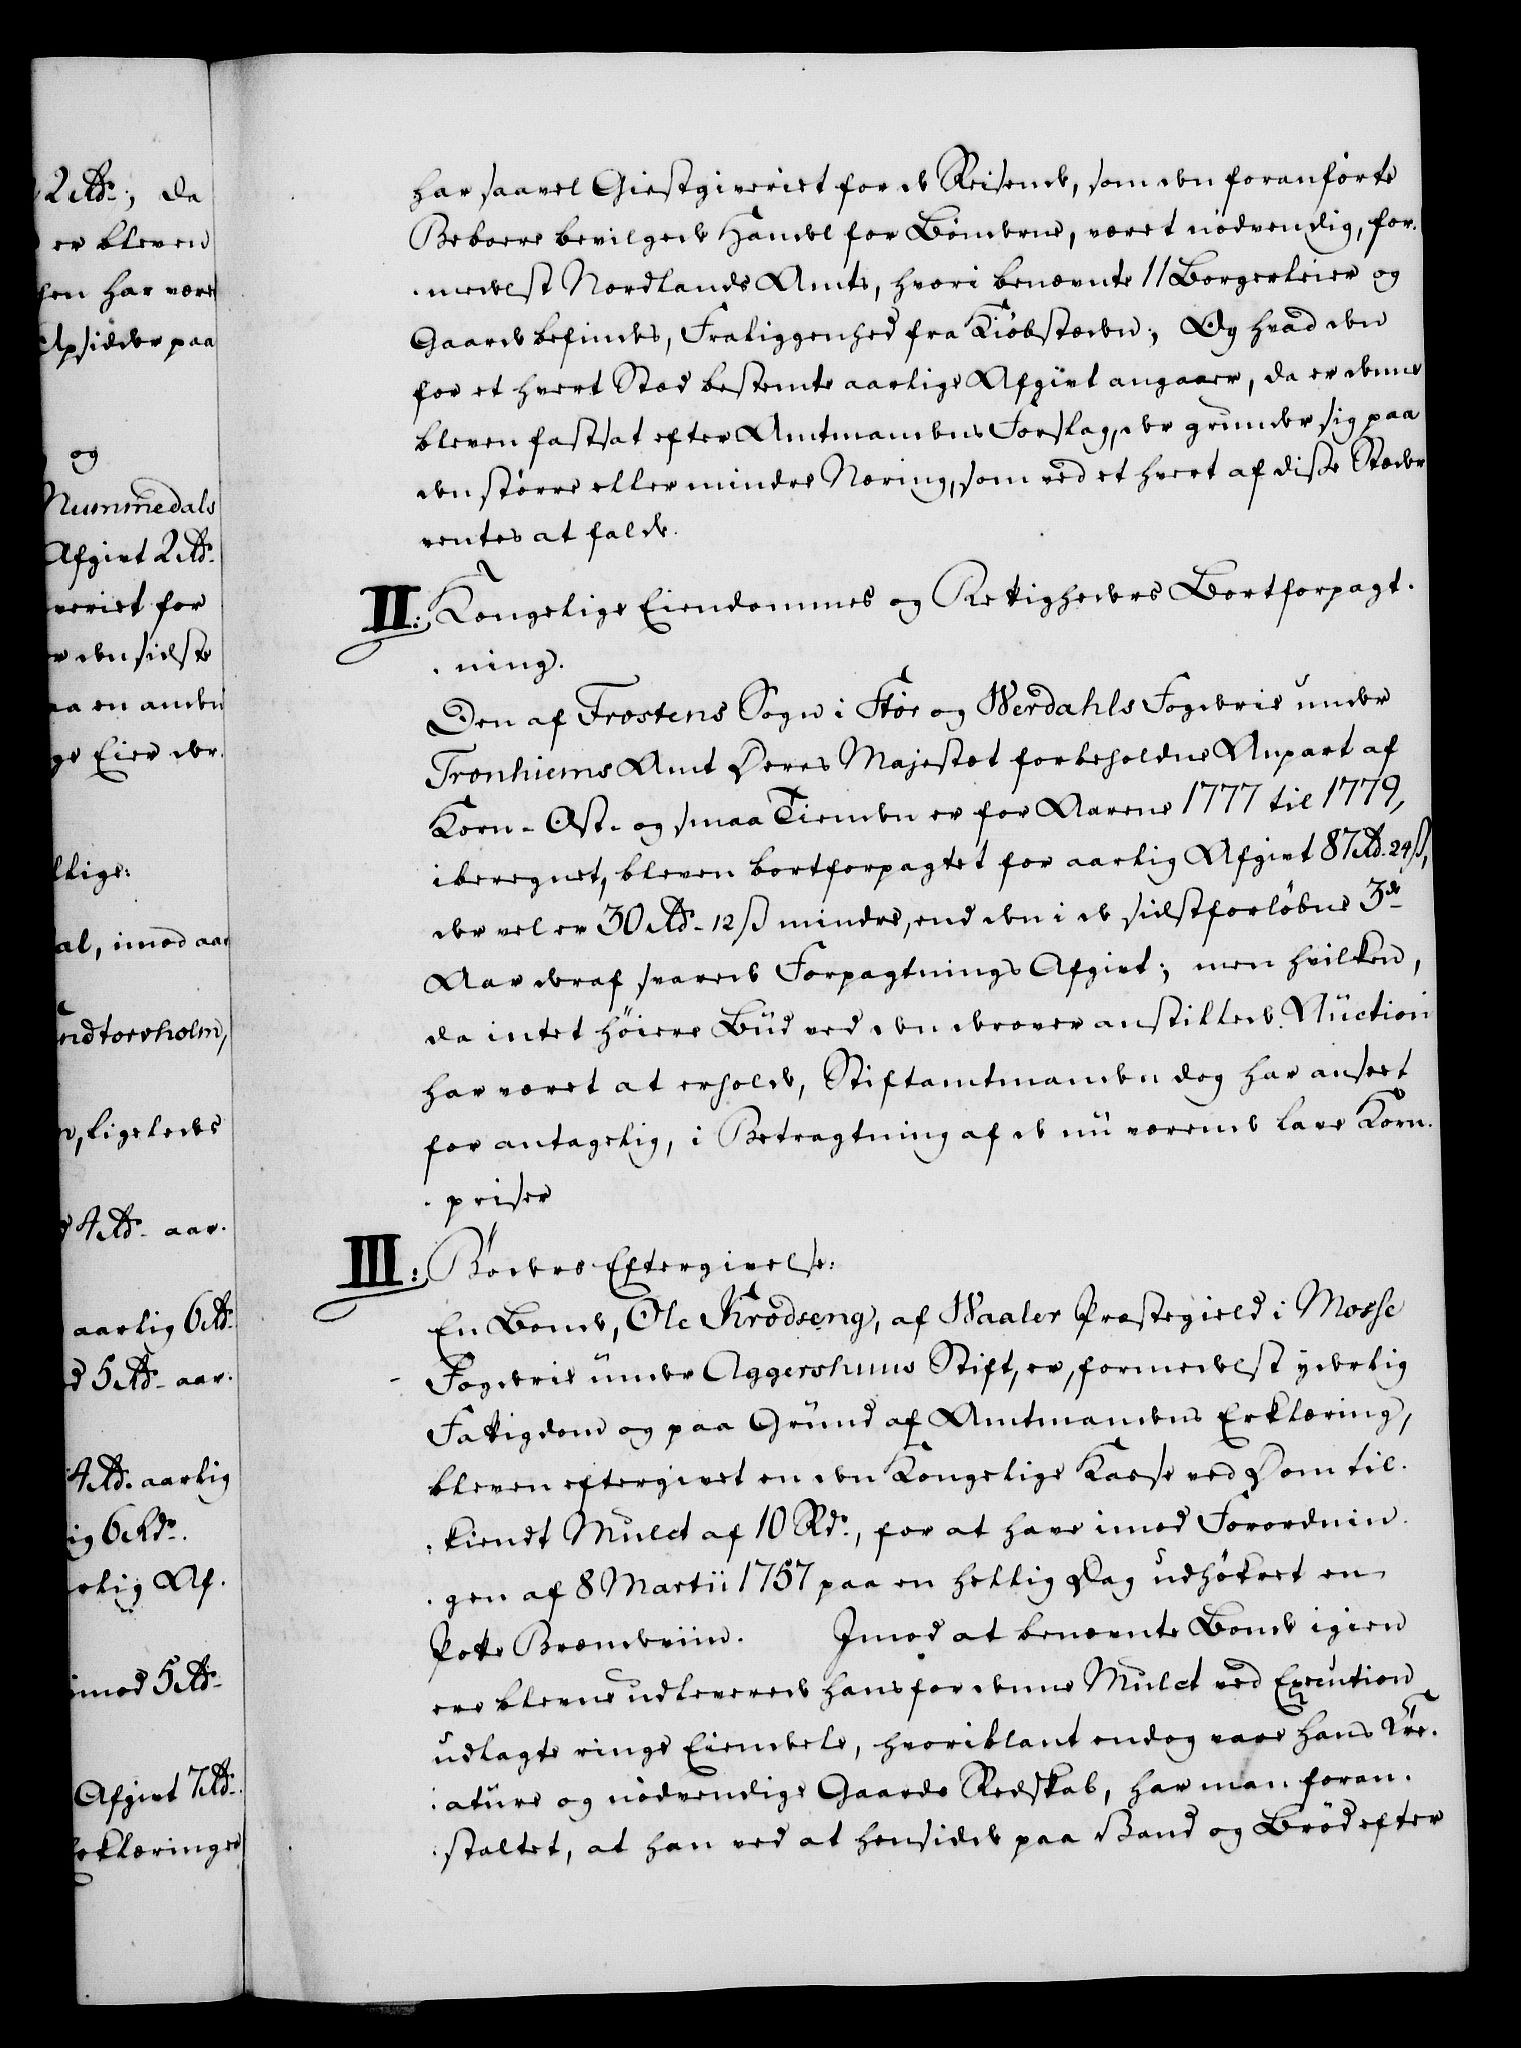 2 Rd:; da
er bleven
hen har være
Opsidder paa
og
Nummedals
Afgivt 2 Rd:
veriet for
den sidste
aa en anden
ge Eier der.
llige:
al, imod aar
ndtorsholm,
ligeledes
4 Rd: aar.
aarlig 6 Rd:
5 Rd: aar:
4 Rd: aarlig
ig 6 Rdr.
rlig Af.
imod 5 Rd:
Afgivt 7 Rd:
Erklæringer
har saavel Giestgiveriet for de Reisende, som den foranførte
Beboere bevilgede Handel for Bønderne, været nødvendig, for-
-medelst Nordlands Amts, hvori benævnte 11 Borgerleier og
Gaarde befindes, Fraliggenhed fra Kiøbstæden; Og hvad den
for et hvert Stæd bestemte aarlige Afgivt angaaer, da er denne
bleven fastsat efter Amtmandens Forslag, der grunder sig paa
den større eller mindre Næring, som ved et hvert af disse Stæder
ventes at falde.
II: Kongelige Eiendommes og Rettigheders Bortforpagt-
-ning.
Den af Frostens Sogn i Stør og Werdahls Fogderie under
Tronhiems Amt Deres Majestæt forbeholdne Anpart af
Korn- Ost- og smaa Tienden er for Aarene 1777 til 1779,
iberegnet, bleven bortforpagtet for aarlig Afgivt 87 Rd. 24 ß,
der vel er 30 Rd. 12 ß mindre, end den i de sidstforløbne 3de
Aar deraf svarede Forpagtnings Afgivt; men hvilken,
da intet høiere Bud ved den derover anstillede Auction
har været at erholde, Stiftamtmanden dog har anseet
for antagelig, i Betragtning af de nu værende lave Korn-
-priser
III: Bøders Eftergivelse:
En Bonde, Ole Krodseng, af Waaler Præstegield i Mosse
Fogderie under Aggershuus Stift, er, formedelst yderlig
Fattigdom og paa Grund af Amtmandens Erklæring,
bleven eftergivet en den Kongelige Kasse ved Dom til-
-kiendt Mulct af 10 Rdr., for at have imod Forordnin-
-gen af 8 Martii 1757 paa en hellig Dag udhøkret en
Potte Brændeviin. Imod at benævnte Bonde igien
ere blevne udleverede hans for denne Mulct ved Execution
udlagte ringe Eiendele, hvoriblant endog vare hans Kre-
-ature og nødvendige Gaards Redskab, har man foran-
-staltet, at han ved at hensidde paa Vand og Brød efter